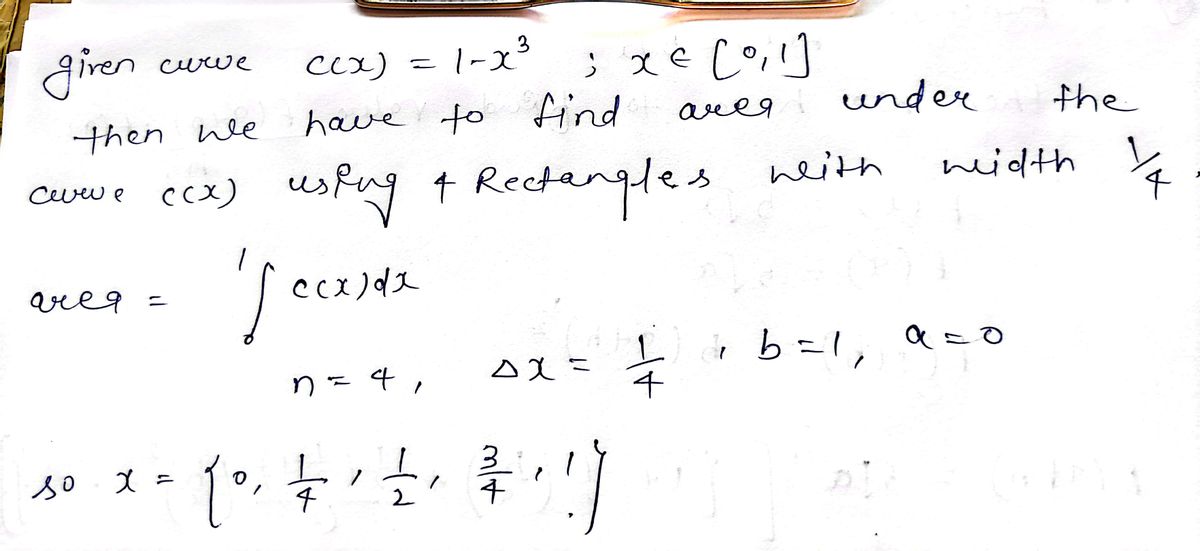 given curve c(x) = 1-x³ ; x ∈ [0,1]
then we have to find area under the
curve c(x) using 4 Rectangles with width 1/4.
area = ¹∫₀ c(x)dx
n = 4, Δx = 1/4, b=1, a=0
so x = {0, 1/4, 1/2, 3/4, 1}